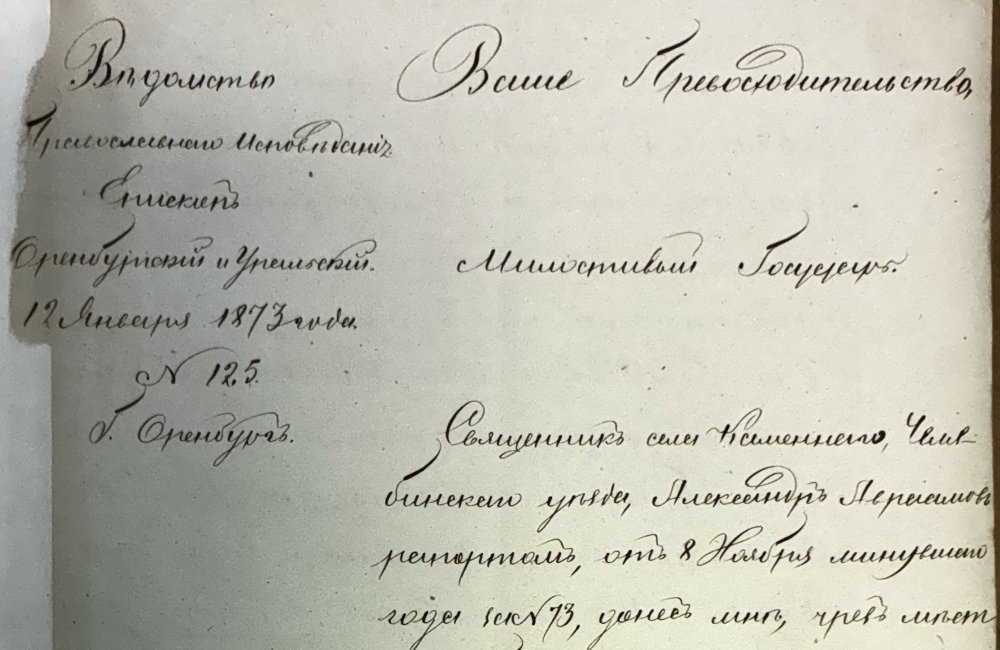 Вѣдомство
Православнаго Исповѣданія
Епископъ
Оренбургскій и Уральскій.
12 Января 1873 года.
N 125.
Г. Оренбургъ.
Ваше Превосходительство,
Милостивый Государь.
Священникъ села Каменнаго, Челя-
бинскаго уѣзда, Александръ Авраамовъ
рапортомъ, отъ 8 Ноября минувшаго
года за N 73, донесъ мнѣ, чрезъ мѣст